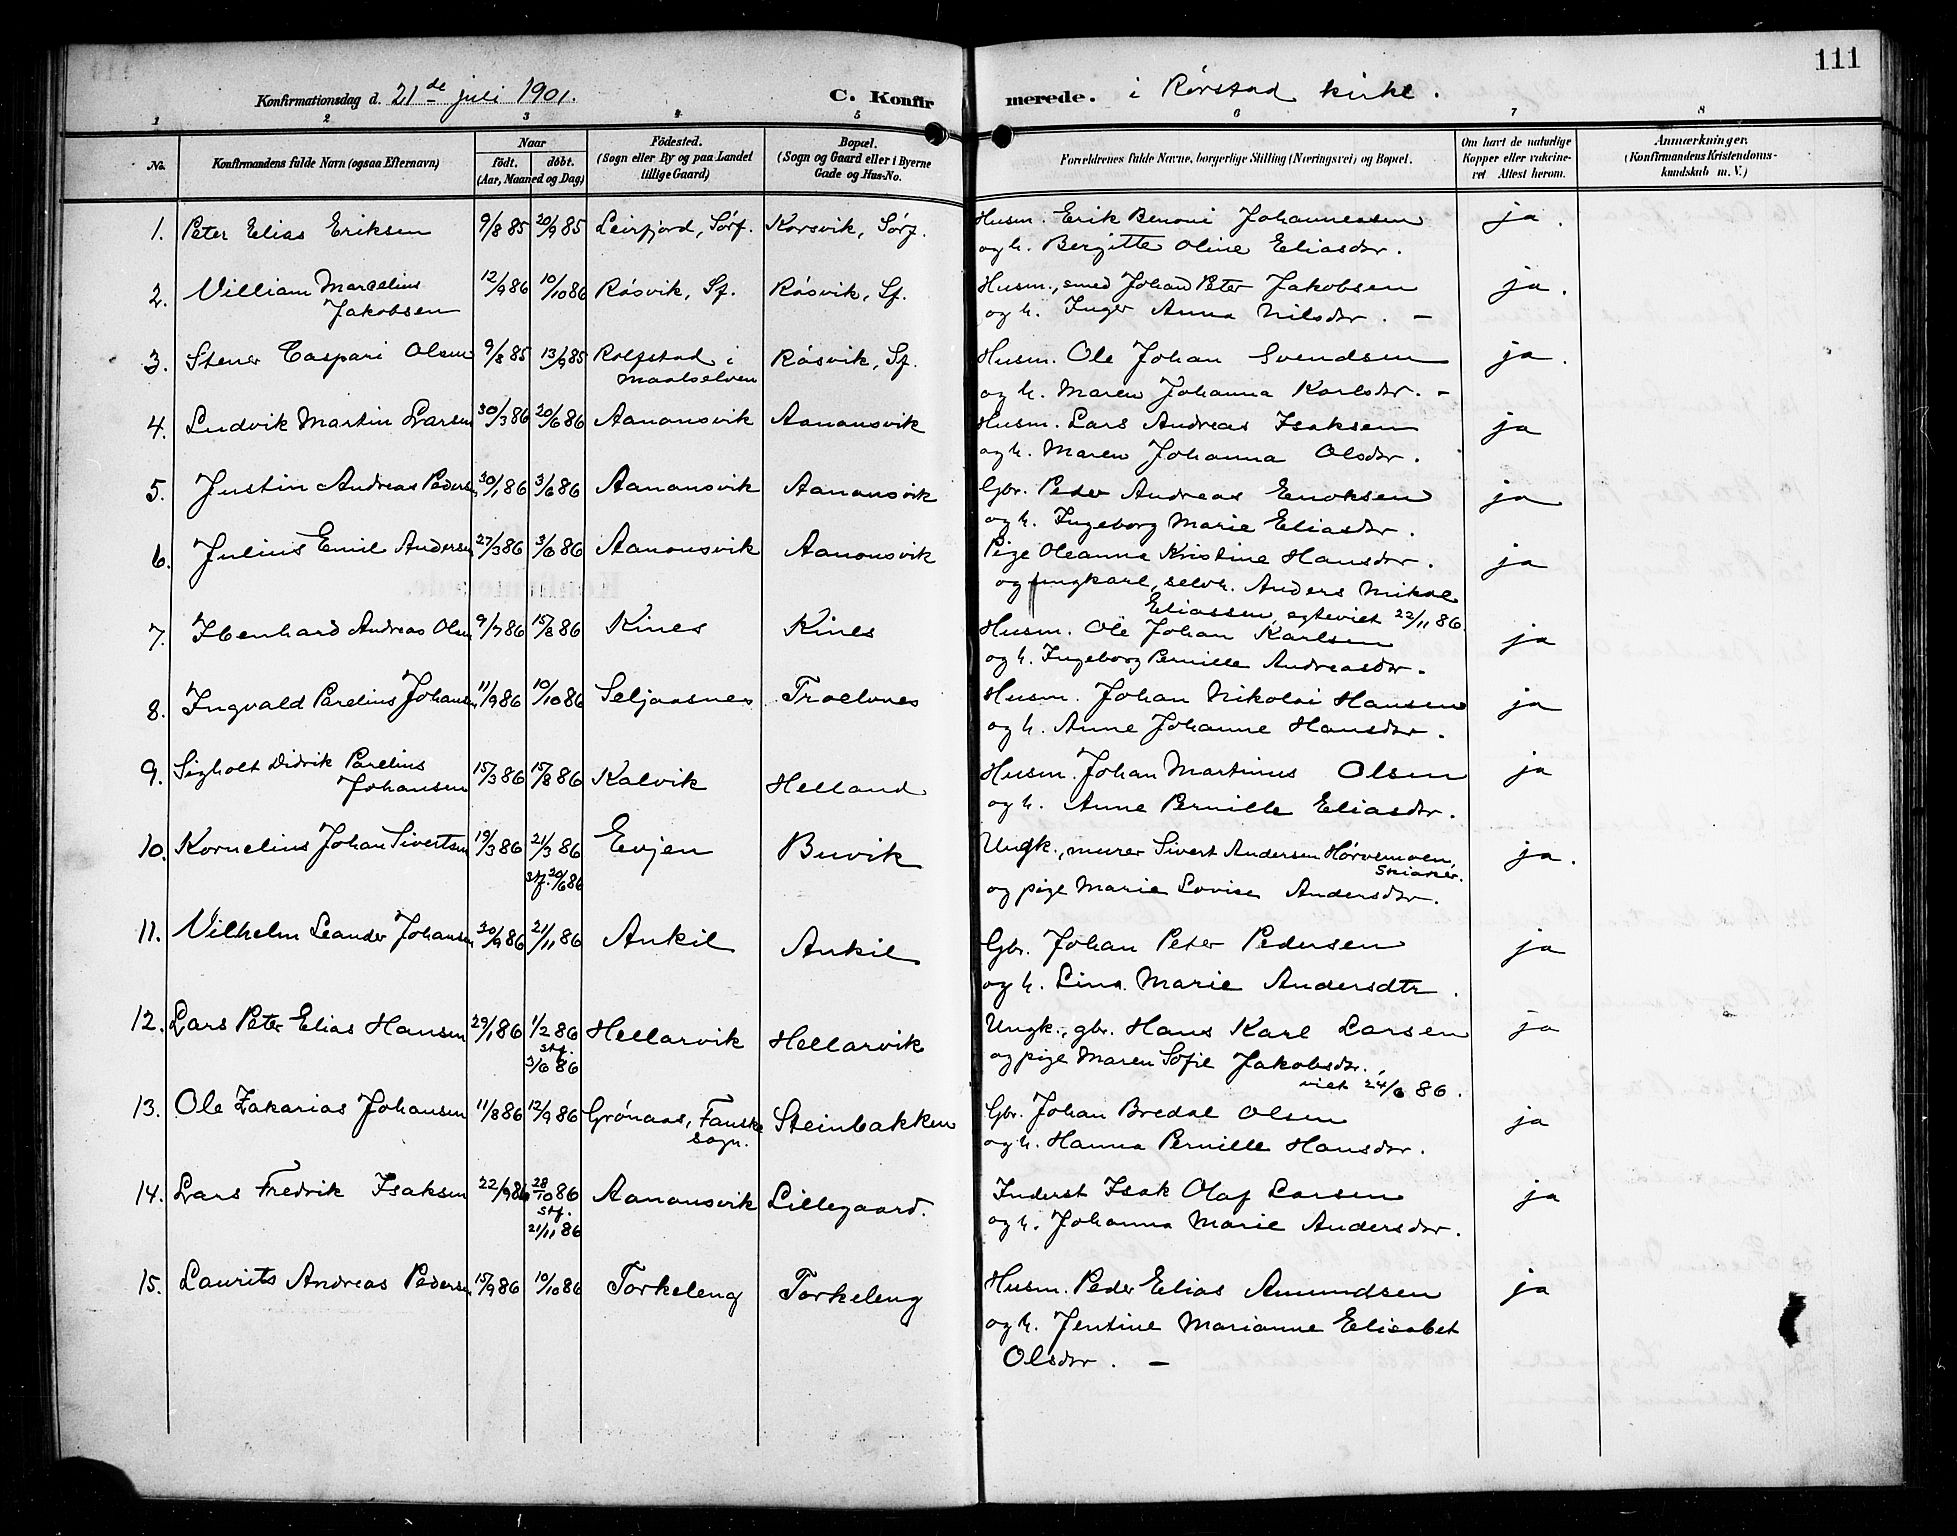 111
Konfirmationsdag d. 21de juli 1901. C. Konfirmerede. i Rørstad kirke.
1 2 3 4 5 6 7 8
No. Konfirmandens fulde Navn (ogsaa Efternavn) Naar født. døbt. (Aar, Maaned og Dag) Fødested. (Sogn eller By og paa Landet tillige Gaard) Bopæl. (Sogn og Gaard eller i Byerne Gade og Hus-No. Forældrenes fulde Navne, borgerlige Stilling (Næringsvei) og Bopæl. Om havt de naturlige Kopper eller vakcineret Attest herom. Anmærkninger. (Konfirmandens Kristendomskundskab m. V.)
1. Peter Elias Eriksen 9/8 85 20/9 85 Leirfjord, Sørf. Korsvik, Sørf. Husm. Erik Benoni Johannessen ja.
og h. Bergitte Oline Eliasdtr.
2. Villiam Marcelius 12/9 86 10/10 86 Røsvik, Sf. Røsvik, Sf. Husm., smed Johan Peter Jakobsen ja.
Jakobsen og h. Inger Anna Nilsdtr. –
3. Stener Caspari Olsen 9/8 85 13/9 85 Rolfstad i Røsvik, Sf. Husm. Ole Johan Svendsen ja.
Maalselven og h. Maren Johanna Karlsdtr. –
4. Ludvik Martin Larsen 30/3 86 20/6 86 Aanonsvik Aanonsvik Husm. Lars Andreas Isaksen ja
og h. Maren Johanna Olsdtr.
5. Justin Andreas Peders. 30/1 86 3/6 86 Aanonsvik Aanonsvik Gbr. Peder Andreas Enoksen ja
og h. Ingeborg Marie Eliasdtr.
6. Julius Emil Andersen 27/3 86 3/6 86 Aanonsvik Aanonsvik Pige Oleanna Kristine Hansdtr. ja
og ungkarl, selvh. Anders Mikal
Eliassen, egteviet 22/11 86.
7. Ibenhard Andreas Olsen 9/7 86 15/8 86 Kines Kines Husm. Ole Johan Karlsen ja
og h. Ingeborg Pernille Andreasdtr.
8. Ingvald Parelius Johansen 11/9 86 10/10 86 Seljaasnes Traelnes Husm. Johan Nikolai Hansen ja
og h. Anne Johanne Hansdtr.
9. Sigholt Didrik Parelius 15/3 86 15/8 86 Kalvik Helland Husm. Johan Martinus Olsen ja
Johansen og h. Anne Pernille Eliasdtr.
10. Kornelius Johan Sivertsen 19/3 86 21/3 86 Evjen Buvik Ungk., murer Sivert Andersen Hørvemoen, ja.
stf. 20/6 86 Skjaker.
og pige Marie Lovise Andersdtr.
11. Vilhelm Leander Johansen 20/9 86 21/11 86 Ankil Ankil Gbr. Johan Peter Pedersen ja
og h. Lina Marie Andersdtr.
12. Lars Peter Elias Hansen 29/1 86 1/2 86 Hellarvik Hellarvik Ungk., gbr. Hans Karl Larsen ja
stf. 3/6 86 og pige Maren Sofie Jakobsdtr.,
viet 24/6 86.
13. Ole Zakarias Johansen 11/8 86 12/9 86 Grønaas, Fauske Steinbakken Gbr. Johan Bredal Olsen ja
sogn. og h. Hanna Pernille Hansdtr.
14. Lars Fredrik Isaksen 22/9 86 28/10 86 Aanonsvik Lillegaard. Inderst Isak Olaf Larsen ja
stf. 21/11 86 og h. Johanna Marie Andersdtr.
15. Laurits Andreas Pedersen 15/9 86 10/10 86 Torkeleng Torkeleng Husm. Peder Elias Amundsen ja
og h. Jentine Marianne Elisabet
Olsdtr. –